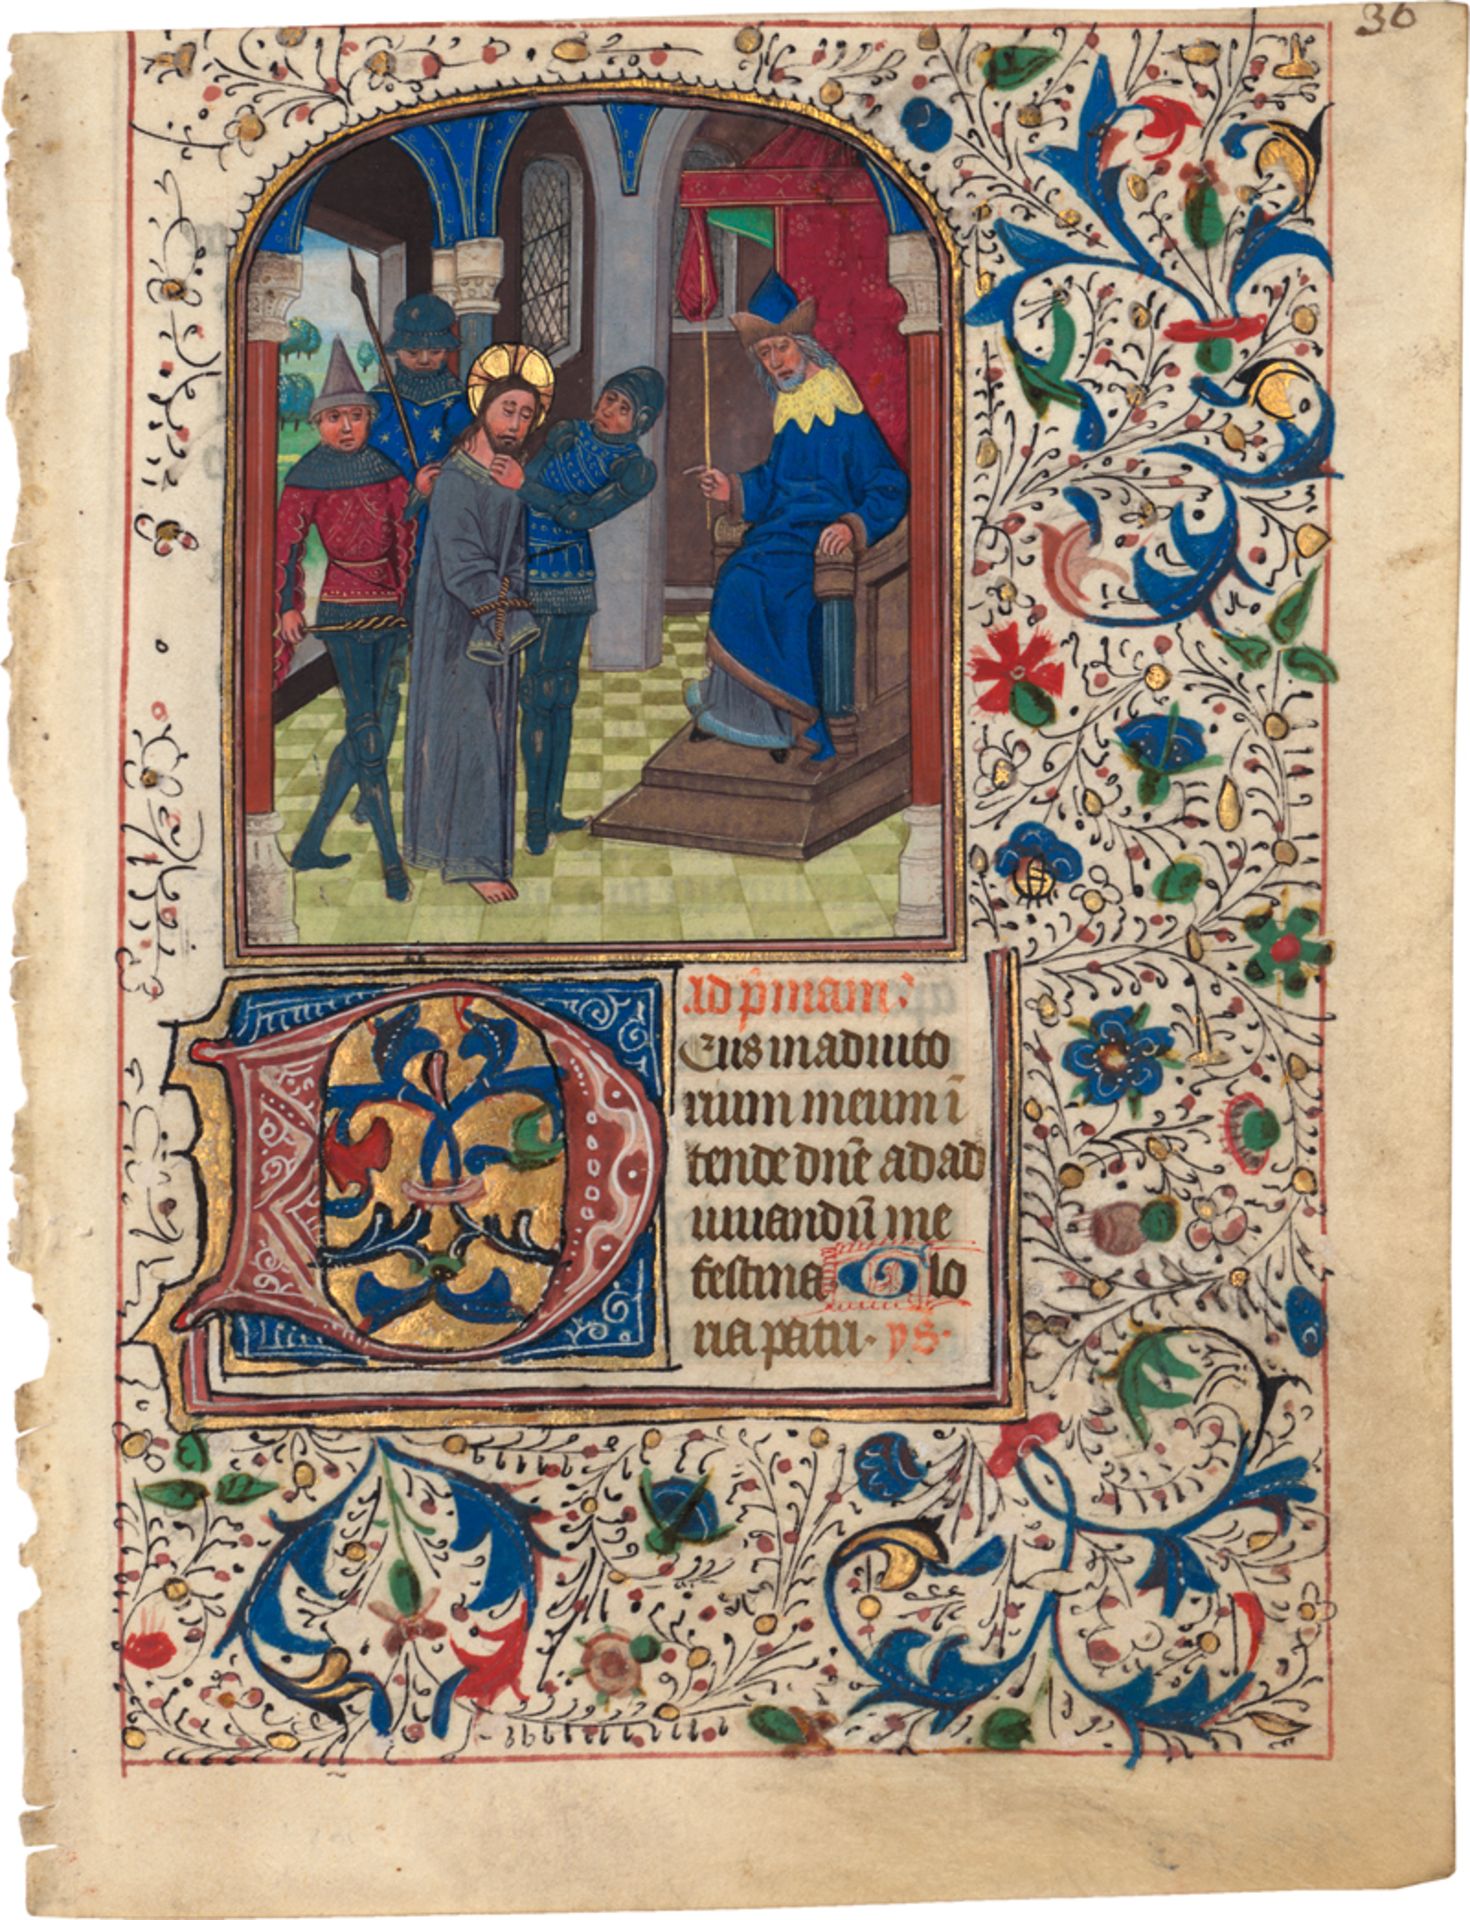 36
ad p̄mam.
Deus in adiuto
rium meum ī
tende dn̄e ad ad
iuuandū me
festina Glo
ria patri. ps.